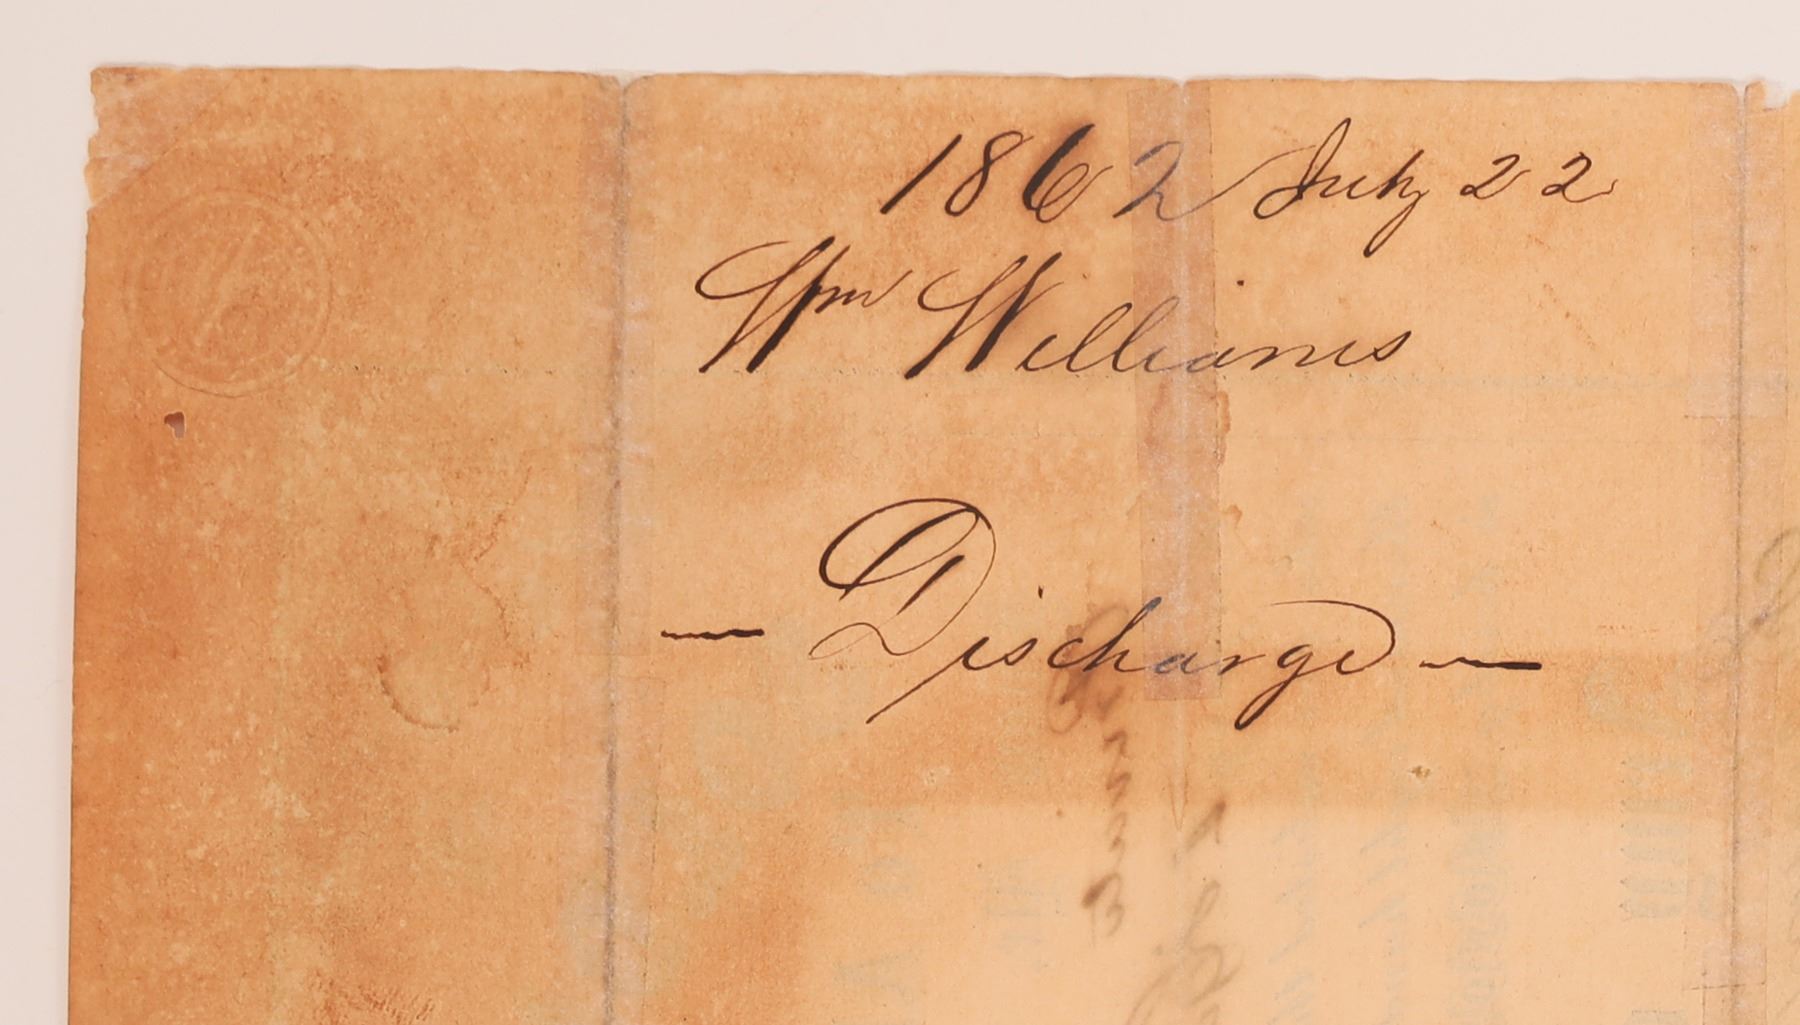 1862 July 22
Wm Williams
— Discharge —